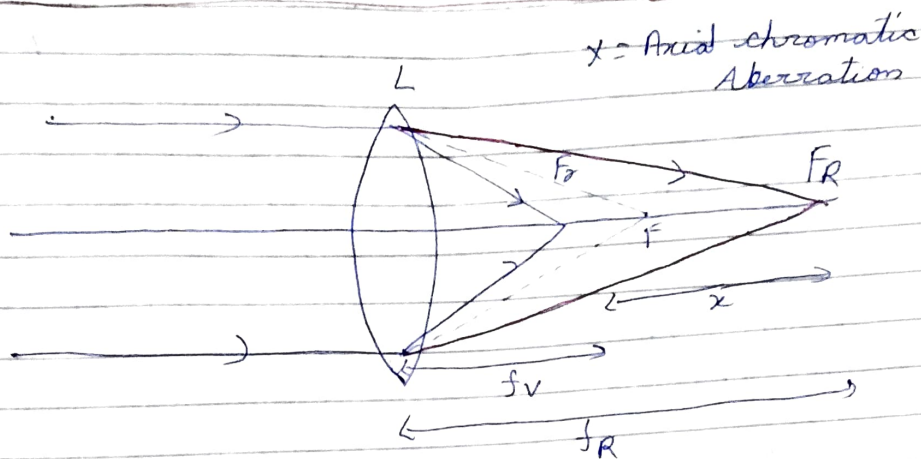 x = Axial chromatic
Aberration
L
Fr
FR
F
x
fv
fR